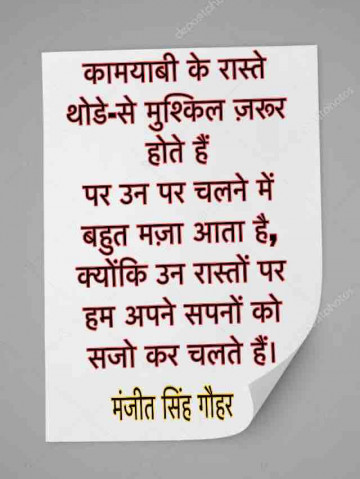 कामयाबी के रास्ते
थोडे-से मुश्किल ज़रूर
होते हैं
पर उन पर चलने में
बहुत मज़ा आता है,
क्योंकि उन रास्तों पर
हम अपने सपनों को
सजो कर चलते हैं।
मंजीत सिंह गौहर